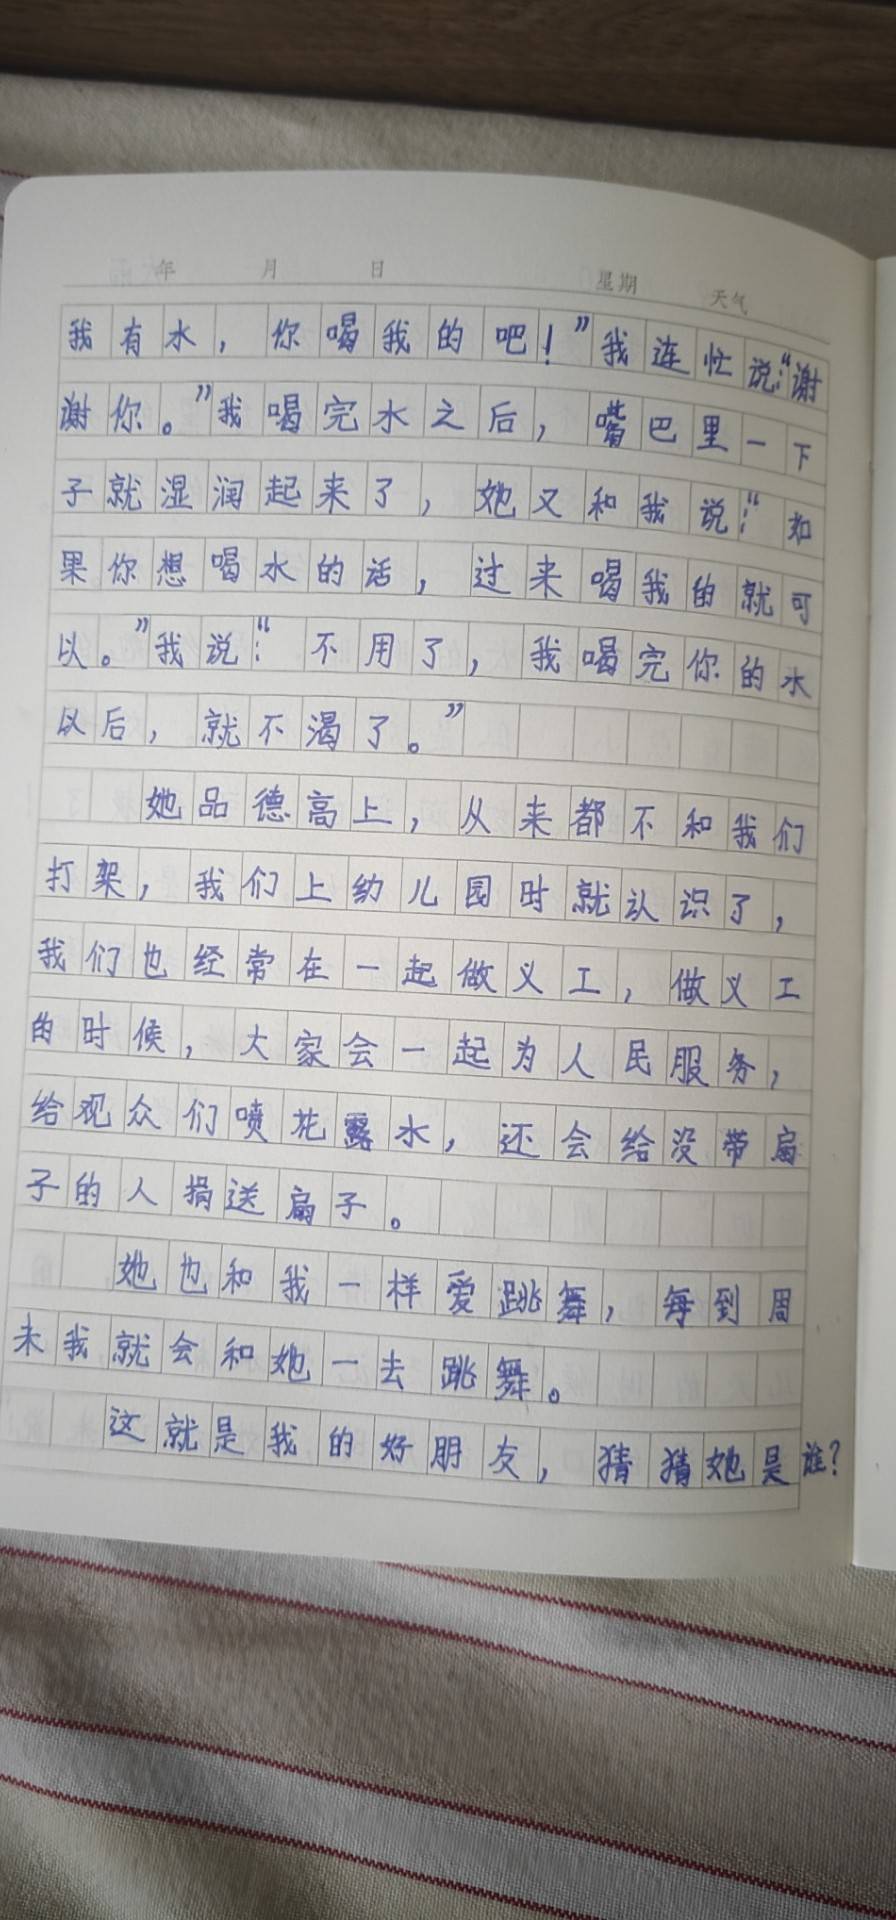 年 月 日 星期 天气
我有水，你喝我的吧！”我连忙说：“谢
谢你。”我喝完水之后，嘴巴里一下
子就湿润起来了，她又和我说：“如
果你想喝水的话，过来喝我的就可
以。”我说：“不用了，我喝完你的水
以后，就不渴了。”
她品德高上，从来都不和我们
打架，我们上幼儿园时就认识了，
我们也经常在一起做义工，做义工
的时候，大家会一起为人民服务，
给观众们喷花露水，还会给没带扇
子的人捐送扇子。
她也和我一样爱跳舞，每到周
末我就会和她一去跳舞。
这就是我的好朋友，猜猜她是谁？